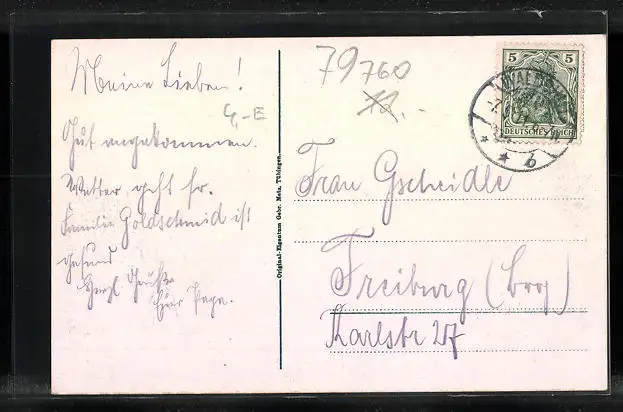 Meine Lieben!
Gut angekommen.
Wetter geht so.
Familie Goldschmid ist
gesund
Herzl Grüße
Euer Papa.
4,-E
79760
12.-
Original-Eigentum Gebr. Metz, Tübingen.
5 5
DEUTSCHES REICH
* * b
Frau Gscheidle
Freiburg (Brsg)
Karlstr 27